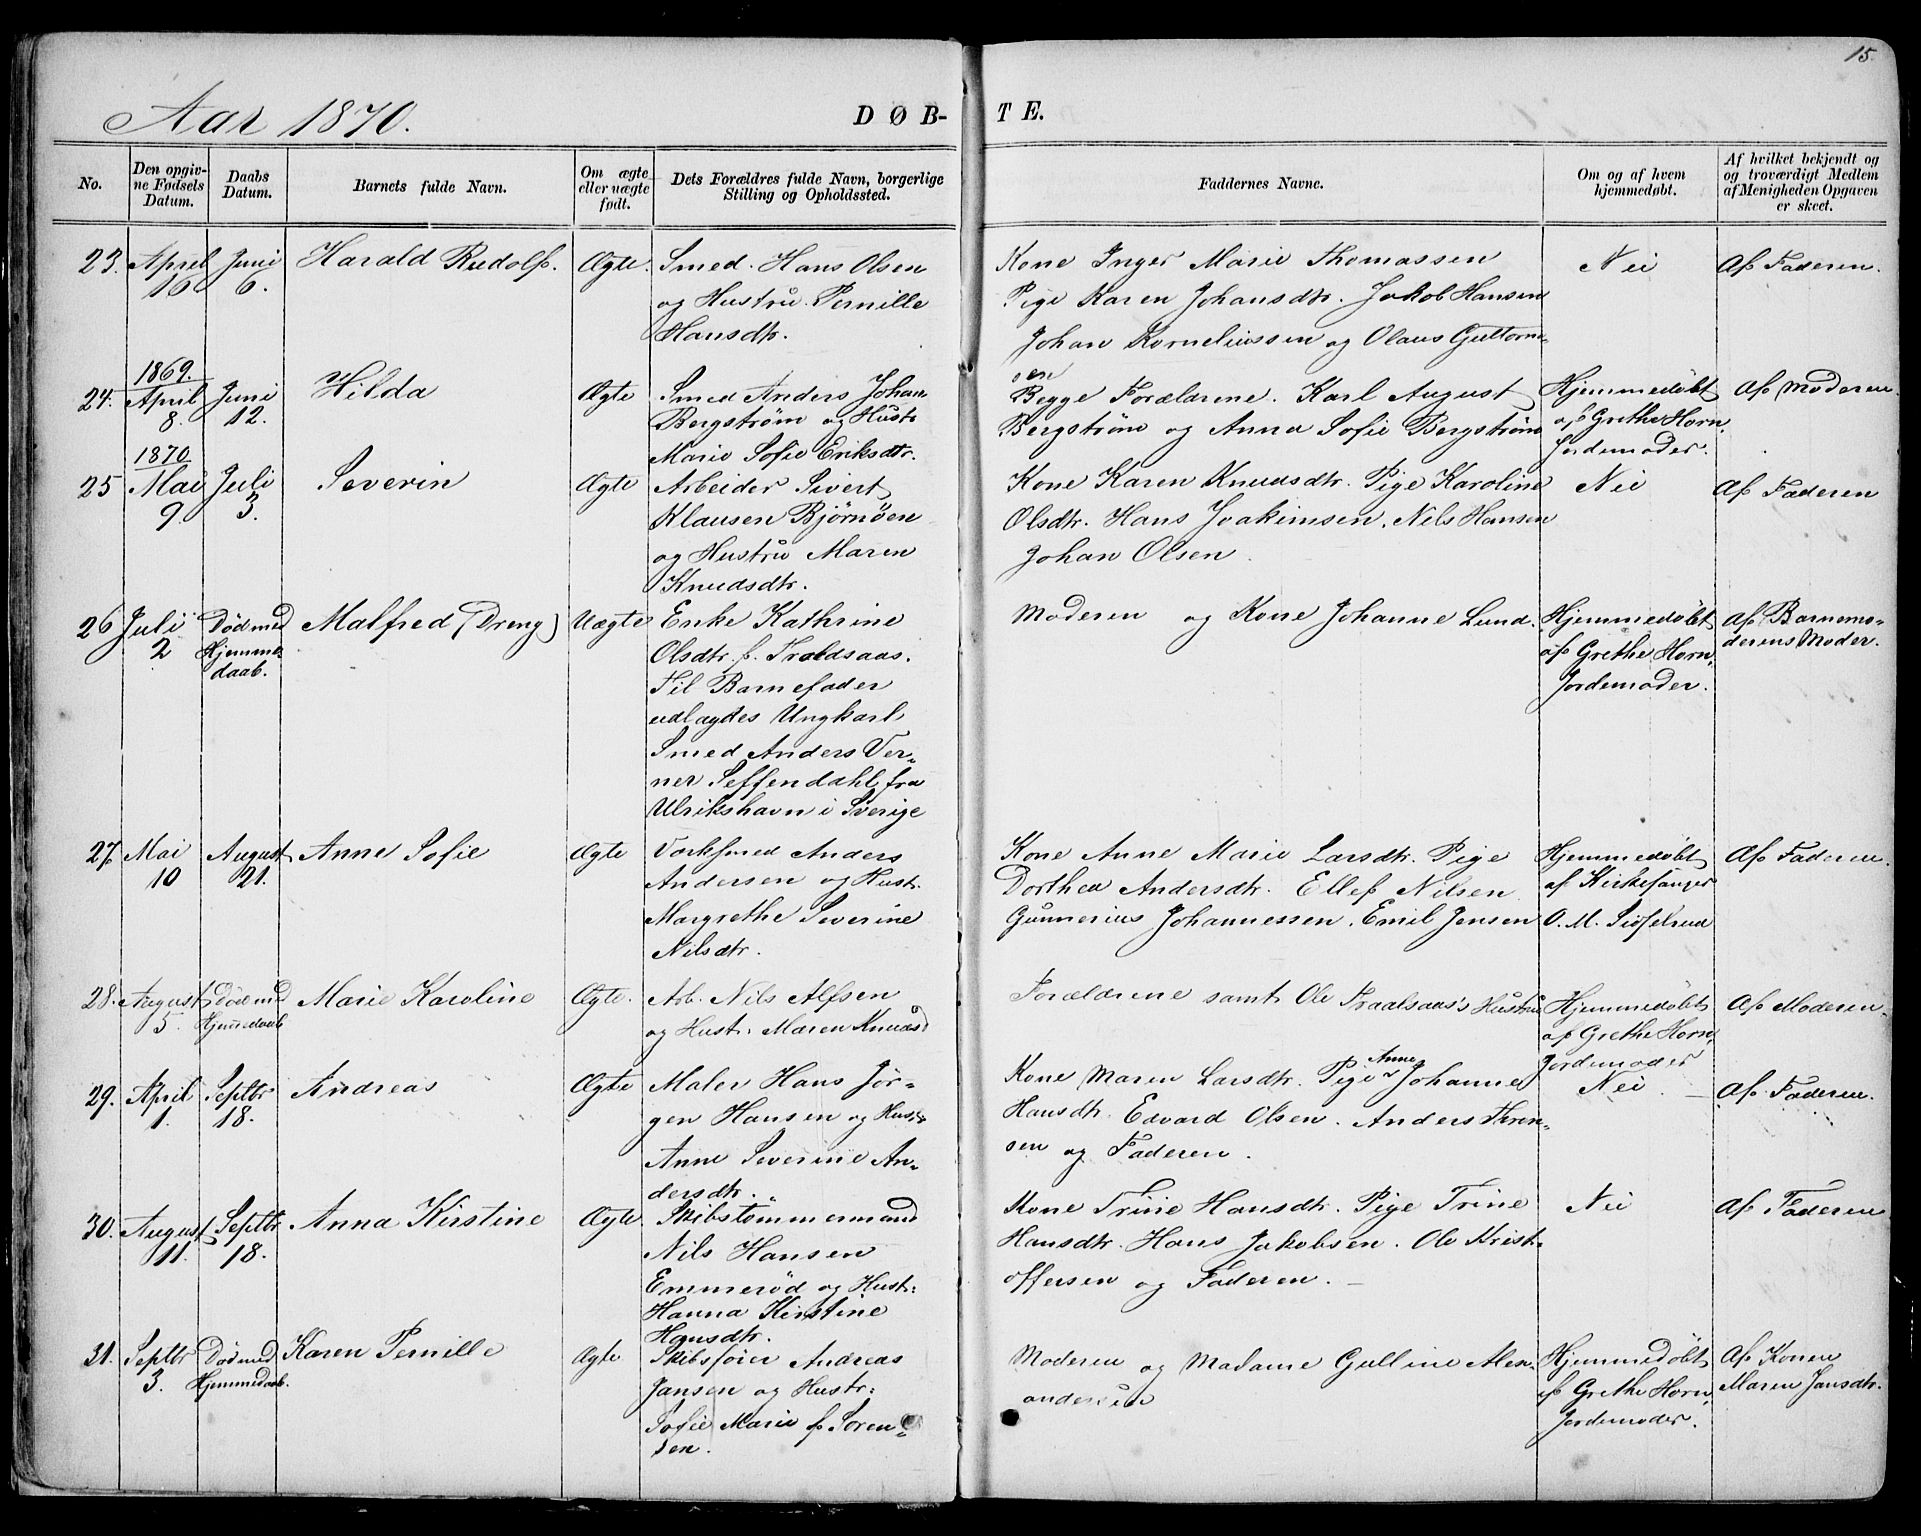 15.
Aar 1870.
DØB-
TE.
No.
Den opgiv-
ne Fødsels
Datum.
Daabs
Datum.
Barnets fulde Navn.
Om ægte
eller uægte
født.
Dets Forældres fulde Navn, borgerlige
Stilling og Opholdssted.
Faddernes Navne.
Om og af hvem
hjemmedøbt.
Af hvilket bekjendt og
og troværdigt Medlem
af Menigheden Opgaven
er skeet.
23.
April
16
Juni
6.
Harald Rudolf.
Ægte.
Smed. Hans Olsen
og Hustru Pernille
Hansdtr.
Kone Inger Marie Thomassen
Pige Karen Johansdtr. Jakob Hansen
Johan Korneliussen og Olaus Guttorm-
sen
Nei
Af Faderen.
24.
1869.
April
8.
Juni
12.
Hilda
Ægte
Smed Anders Johan
Bergstrøm og Hust.
Marie Sofie Eriksdtr.
Begge Forældrene. Karl August
Bergstrøm og Anna Sofie Bergstrøm
Hjemmedøbt
af Grethe Horn,
Jordemoder.
Af Moderen.
25
1870
Mai
9.
Juli
3.
Severin
Ægte
Arbeider Sivert
Klausen Bjørnøen
og Hustru Maren
Knudsdtr.
Kone Karen Knudsdtr. Pige Karoline
Olsdtr. Hans Joakimsen. Nils Hansen
Johan Olsen.
Nei
Af Faderen
26
Juli
2
Død med
Hjemme
daab.
Malfred (Dreng)
Uægte
Enke Kathrine
Olsdtr. f. Traldsaas.
Til Barnefader
udlagdes Ungkarl
Smed Anders Ver-
ner Seffendahl fra
Ulrikshavn i Sverige
Moderen og Kone Johanne Lund.
Hjemmedøbt
af Grethe Horn,
Jordemoder.
Af Barnemo-
derens Moder.
27.
Mai
10
August
21.
Anne Sofie
Ægte
Værksmed Anders
Andersen og Hust.
Margrethe Severine
Nilsdtr.
Kone Anne Marie Larsdtr. Pige
Dorthea Andersdtr. Ellef Nilsen
Gunnerius Johannessen. Emil Jensen
Hjemmedøbt
af Kirkesanger
O. M. Siøfelrud
Af Faderen.
28.
August
5.
Død med
Hjemmedaab
Marie Karoline
Ægte.
Arb. Nils Alfsen
og Hust. Maren Knudsd
Forældrene samt Ole Traalsaas's Hustru
Hjemmedøbt
af Grethe Horn,
Jordemoder
Af Moderen.
29.
April
1.
Septbr
18.
Andreas
Ægte
Maler Hans Jør-
gen Hansen og Hustr
Anne Severine An-
dersdtr.
Kone Maren Larsdtr. Pige Anne Johanne
Hansdtr. Edvard Olsen. Anders Thron-
sen og Faderen.
Nei
Af Faderen.
30.
August
11.
Septbr
18.
Anna Kirstine
Ægte
Skibstømmermand
Nils Hansen
Emmerød og Hust:
Hanna Kirstine
Hansdtr.
Kone Trine Hansdtr. Pige Trine
Hansdtr. Hans Jakobsen. Ole Krist-
offersen og Faderen.
Nei
Af Faderen
31.
Septbr
3.
Død med
Hjemmedaab.
Karen Pernille
Ægte
Skibsfører Andreas
Jansen og Hustr:
Sofie Marie f. Søren-
sen.
Moderen og Madame Gulline Alex-
andersen
Hjemmedøbt
af Grethe Horn,
Jordemoder.
Af Konen
Maren Jansdtr.